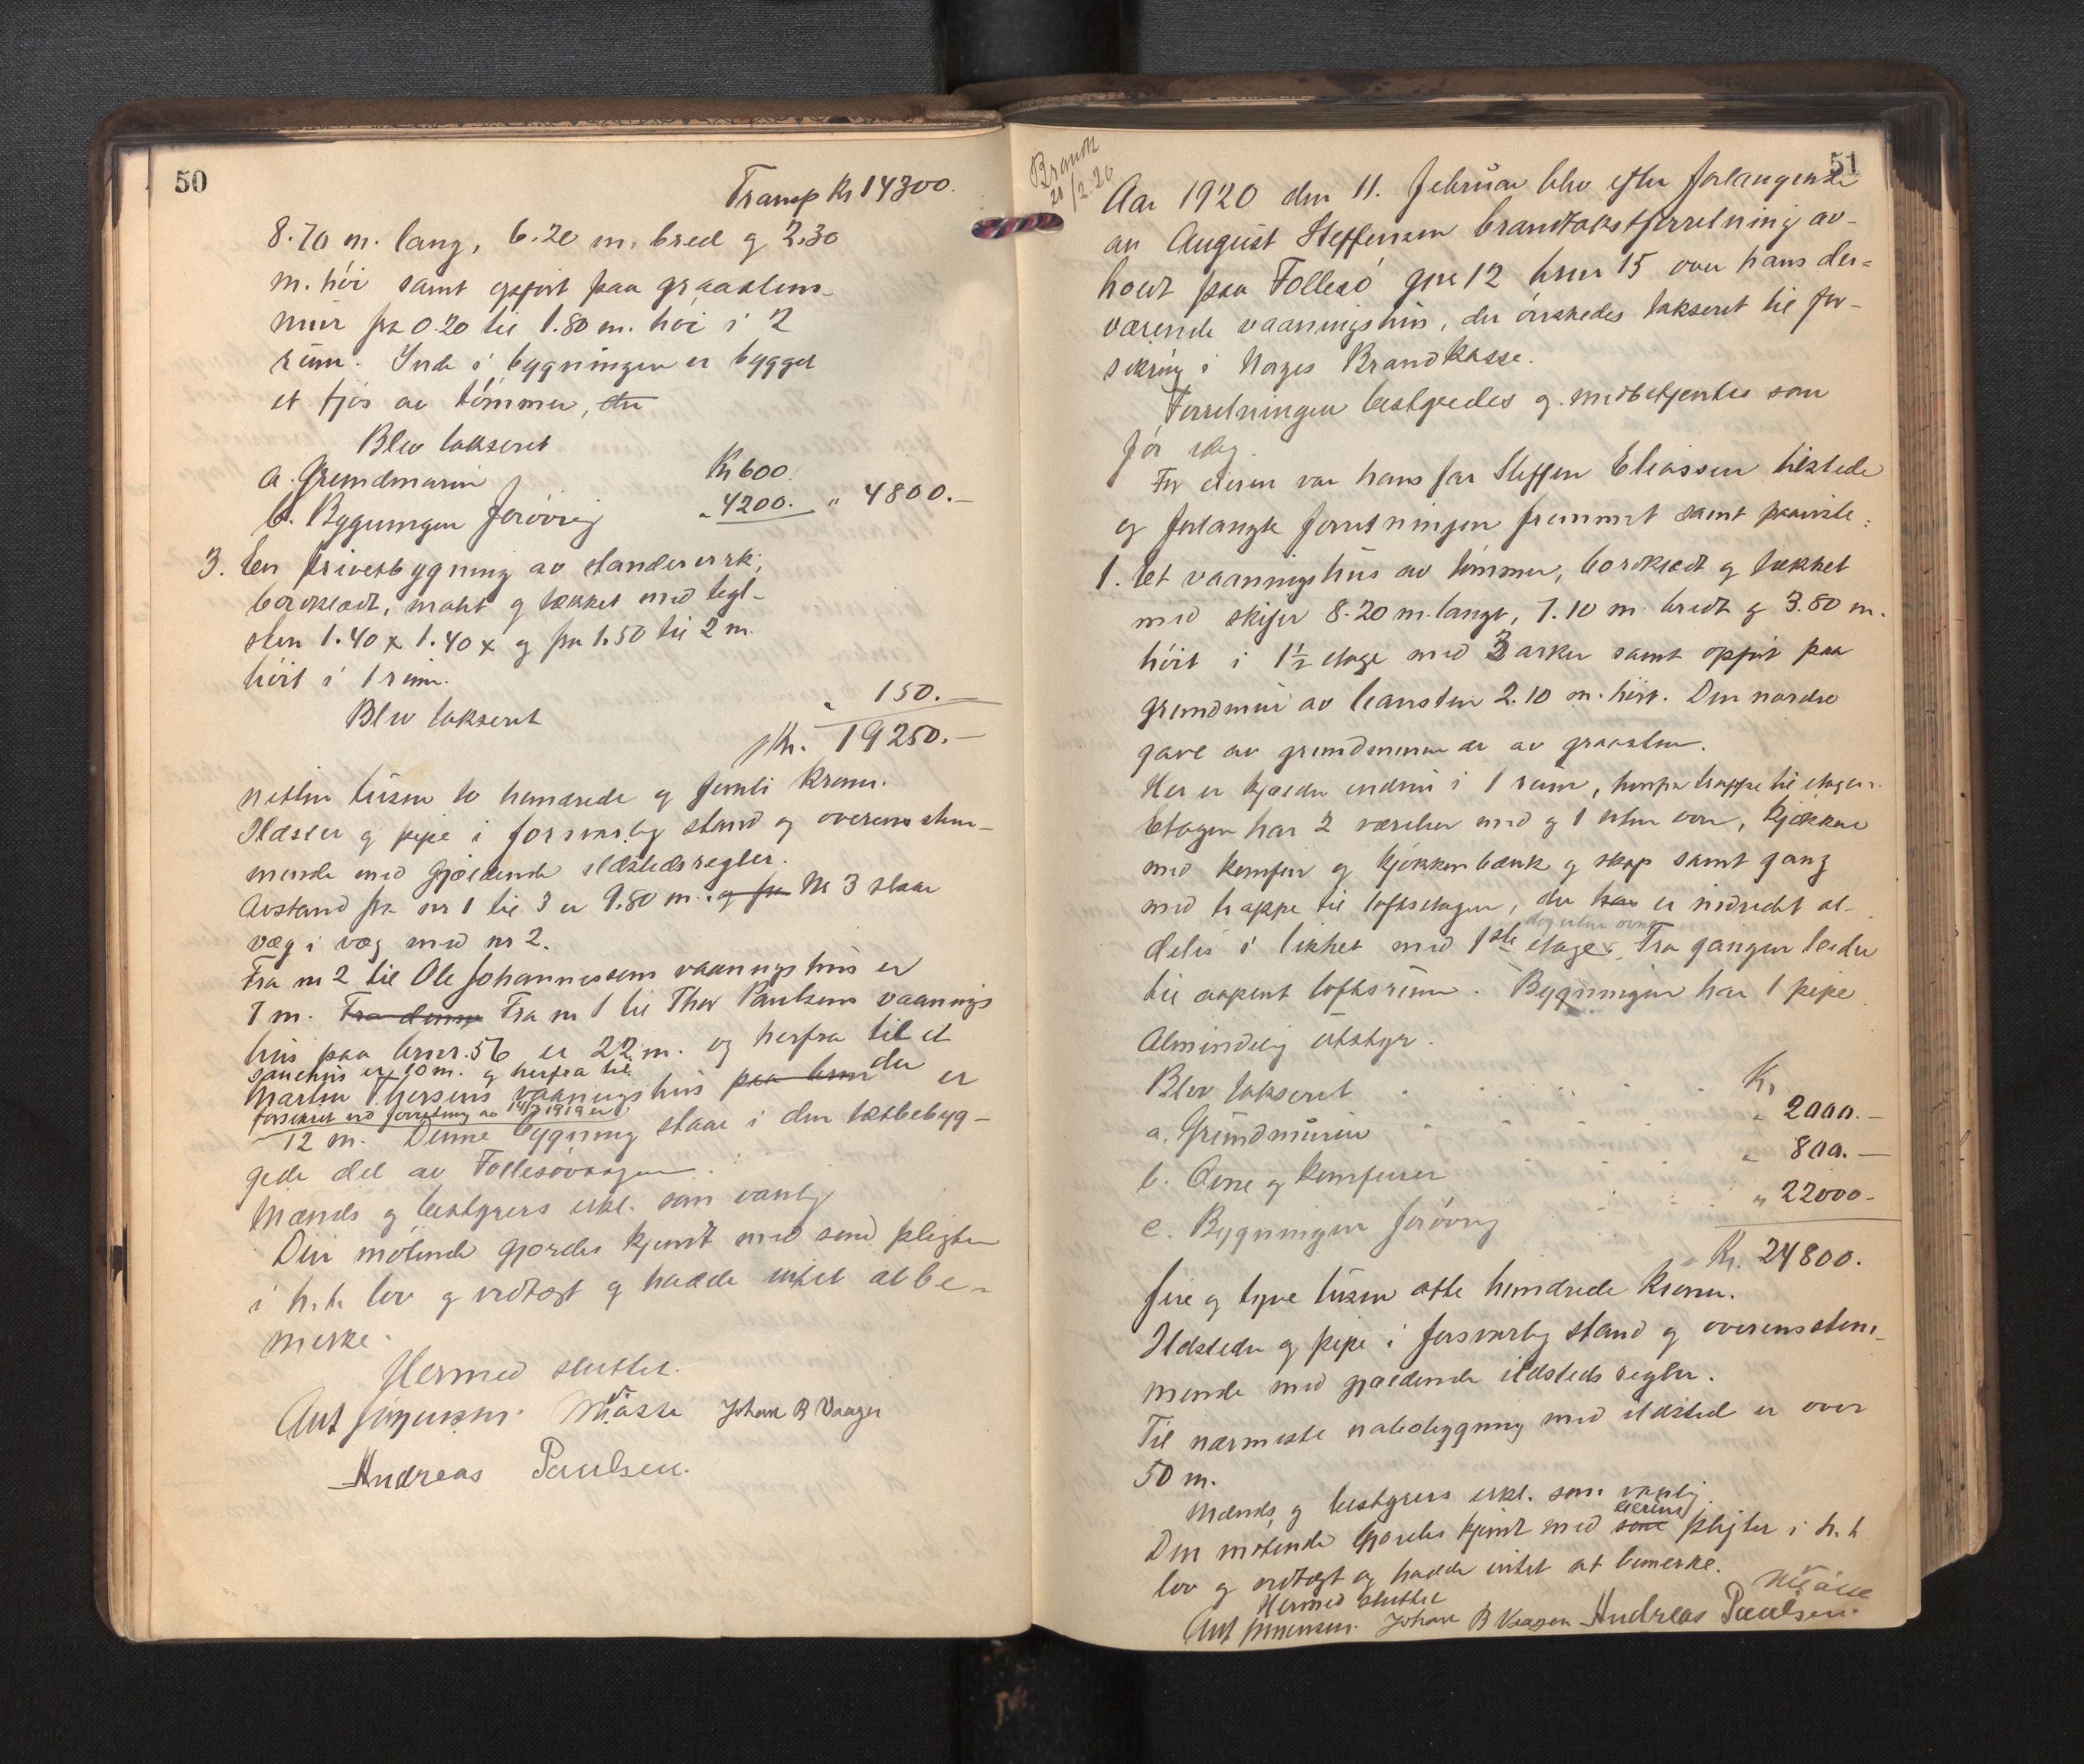 50
Transp Kr 14300.
8.70 m. lang, 6.20 m. bred og 2.30
m. höi samt opført paa graastens-
mur fra 0.20 til 1.80 m. höi i 2
rum. Inde i bygningen er bygget
et fjös av tömmer, der
Blev takseret
a. Grundmuren Kr 600.
b. Bygningen forövrig " 4200. " 4800.-
3. En privetbygning av standerverk,
bordklædt, malet og tækket med tegl-
sten 1.40 x 1.40 x og fra 1.50 til 2 m.
höit i 1 rum.
Blev takseret " 150.-
Kr. 19250.-
nitten tusen to hundrede og femti kroner.
Ildsteder og pipe i forsvarlig stand og overensstem-
mende med gjældende ildstedsregler.
Avstand fra nr 1 til 3 er 9.80 m. og fra Nr 3 staar
væg i væg med nr 2.
Fra nr 2 til Ole Johannessens vaaningshus er
7 m. Fra denne Fra nr 1 til Thor Paulsens vaanings
hus paa brnr. 56 er 22 m. og herfra til et
er 10 m. og herfra til
Martin Iversens vaaningshus paa brnr der er
forsikret ved forretning av 14/7 1919 er
12 m. Denne bygning staar i den tætbebyg-
gede del av Follesövaagen.
Mænds og bestyrers erkl. som vanlig
Den mötende gjordes kjendt med sine pligter
i h.t. lov og vedtægt og hadde intet at be-
merke.
Hermed sluttet.
Ant Jörgensen. Johan B Vaagen
Andreas Paulsen.
Brandtk
20/2.20
51
Aar 1920 den 11. februar blev efter forlangende
av August Steffensen brandtakstforretning av-
holdt paa Follesö gnr 12 brnr 15 over hans der-
værende vaaningshus, der önskedes takseret til for-
sikring i Norges Brandkasse.
Forretningen bestyredes og medbetjentes som
för sleg.
For eieren var hans far Steffen Eliassen tilstede
og forlangte forretningen fremmet samt paaviste:
1. Et vaaningshus av tömmer, bordklædt og tækket
med skifer 8.20 m. langt, 7.10 m. bredt og 3.80 m.
höit i 1½ etage med 3 arker samt opfört paa
grundmur av 2.10 m. höit. Den nordre
gavl av grundmuren er av graasten.
Her er kjælder indrei i 1 rum, herfra trappe til etagen.
Etagen har 2 værelser med og 1 uten ovn, kjökken
med komfur og kjökkenbænk og skap samt gang
med trappe til loftsetagen, der har er indredet al-
deles i likhet med 1ste etage, dog uten ovner. Fra gangen leder
til aapent loftsrum. Bygningen har 1 pipe.
Almindelig utstyr.
Blev takseret Kr
a. Grundmuren " 2000.-
b. Ovne og komfurer " 800.-
c. Bygningen forövrig " 22000-
Kr. 24800.
fire og tyve tusen otte hundrede kroner.
Ildsteder og pipe i forsvarlig stand og overensstem-
mende med gjældende ildstedsregler.
Til nærmeste nabobygning med ildsted er over
50 m.
Mænds og bestyrers erkl. som vanlig.
Den mötende gjordes kjendt med sine eierens pligter i h.t
lov og vedtægt og hadde intet at bemerke.
Hermed sluttet
Ant Jörgensen. Johan B Vaagen Andreas Paulsen.